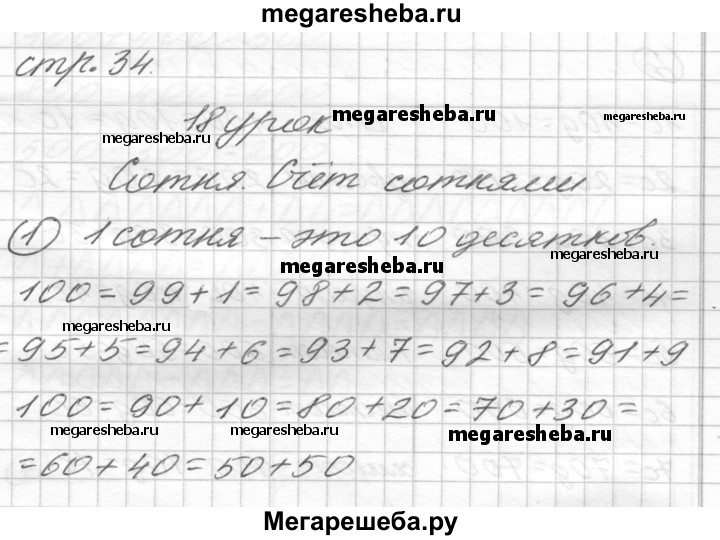 megaresheba.ru
стр. 34.
18 урок
megaresheba.ru
megaresheba.ru
megaresheba.ru
Сотня. Счёт сотнями
① 1 сотня – это 10 десятков.
megaresheba.ru
megaresheba.ru
100 = 99 + 1 = 98 + 2 = 97 + 3 = 96 + 4 =
megaresheba.ru
= 95 + 5 = 94 + 6 = 93 + 7 = 92 + 8 = 91 + 9
100 = 90 + 10 = 80 + 20 = 70 + 30 =
megaresheba.ru
megaresheba.ru
megaresheba.ru
= 60 + 40 = 50 + 50
Мегарешеба.ру